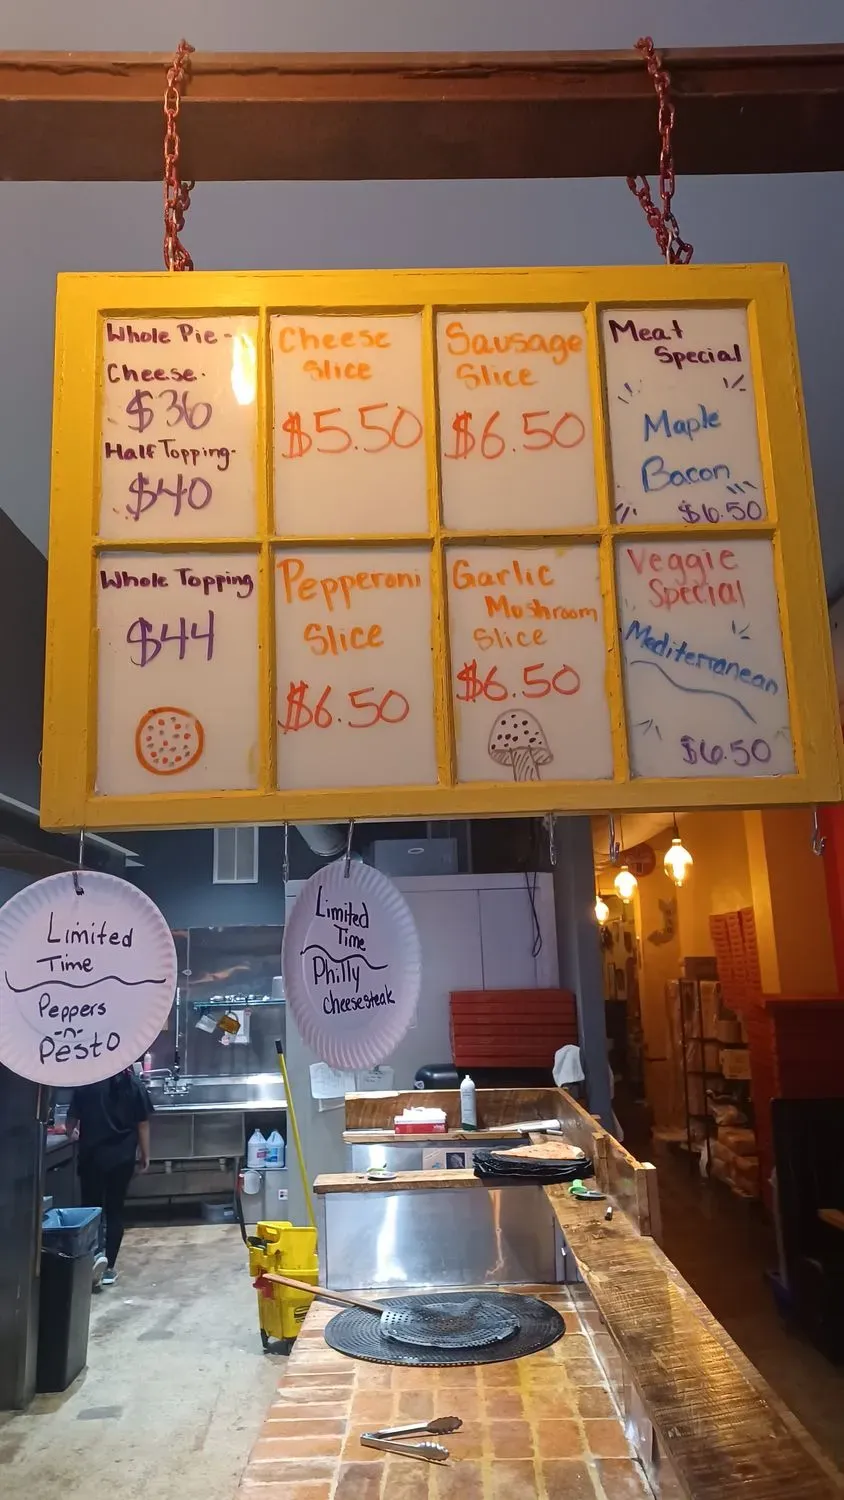 Whole Pie-
Cheese-
$36
Half Topping-
$40
Cheese
Slice
$5.50
Sausage
Slice
$6.50
Meat
Special
Maple
Bacon
$6.50
Whole Topping
$44
Pepperoni
Slice
$6.50
Garlic
Mushroom
Slice
$6.50
Veggie
Special
Mediterranean
$6.50
Limited
Time
Peppers
-n-
Pesto
Limited
Time
Philly
Cheesesteak